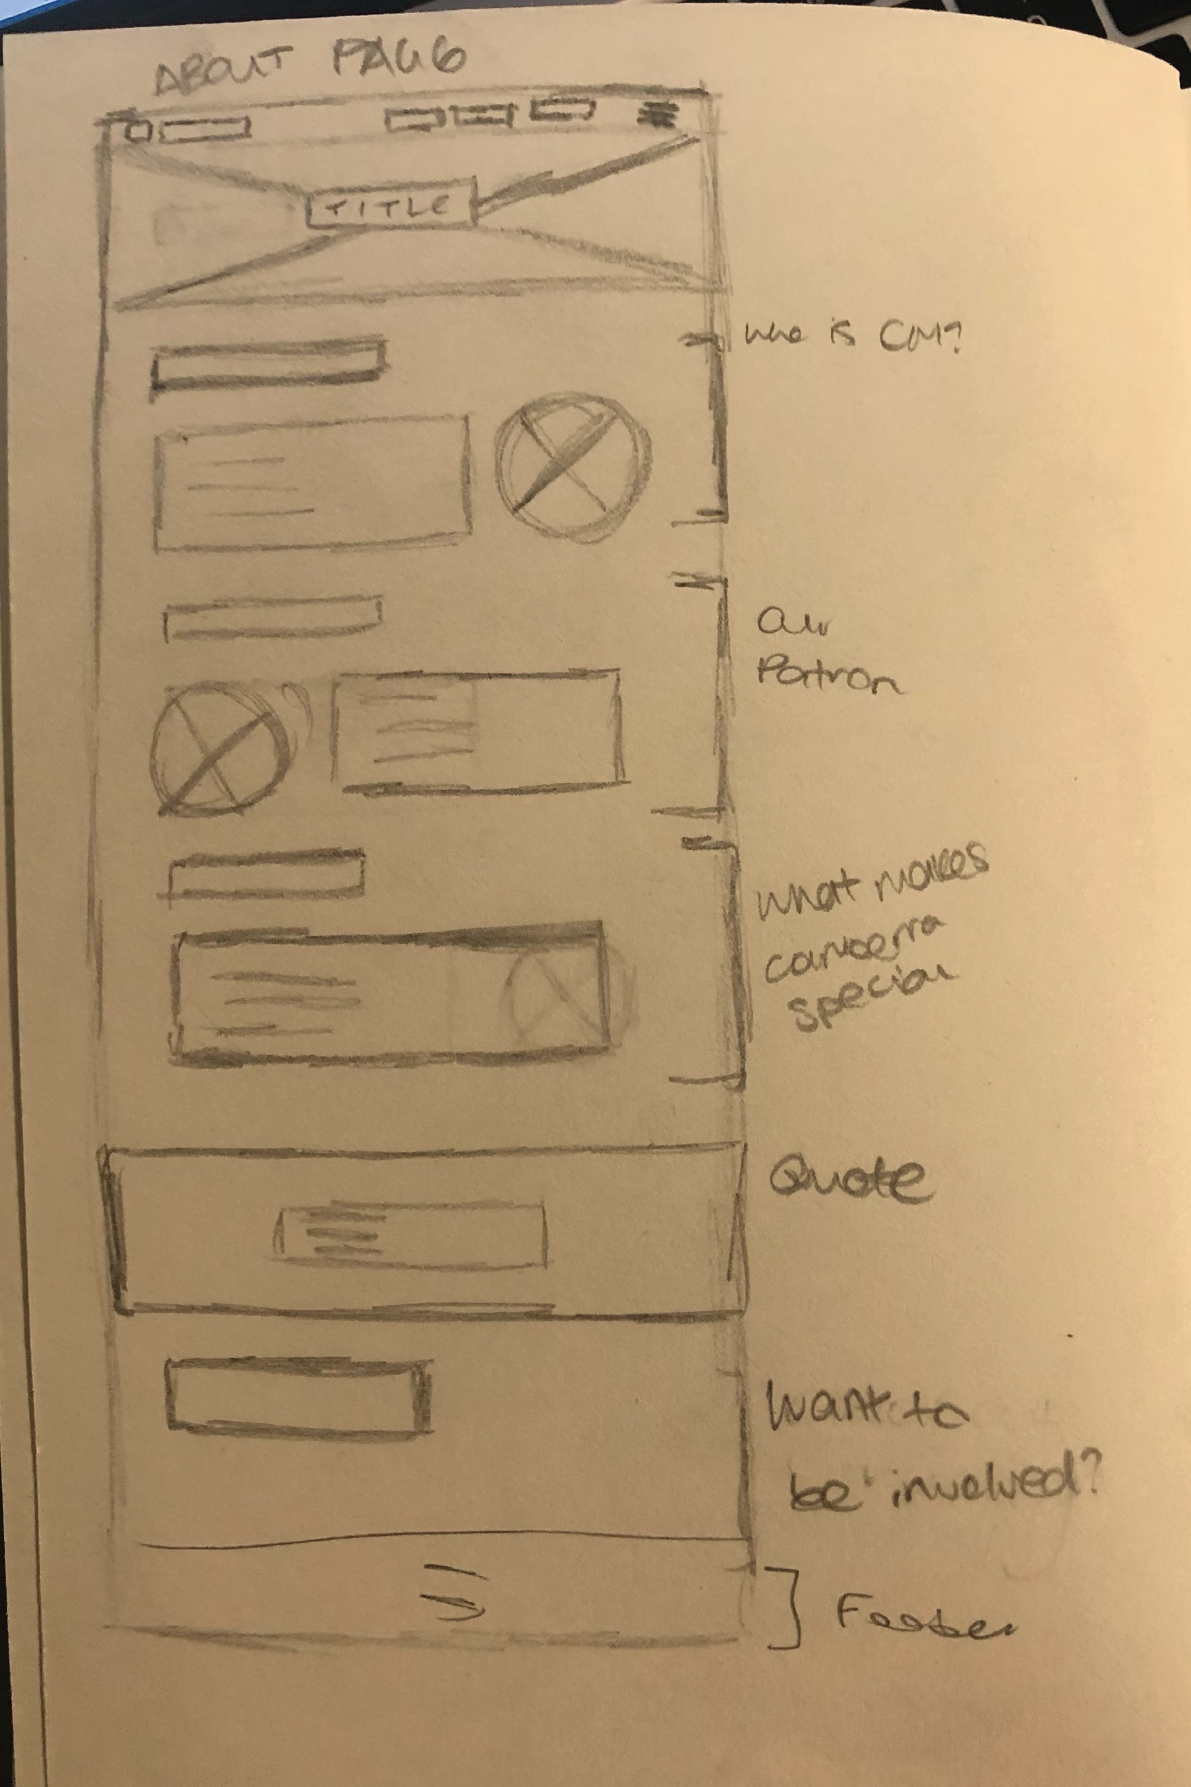 ABOUT PAGE
TITLE
who is CM?
Our
Patron
What makes
canberra
special
Quote
Want to
be involved?
Footer